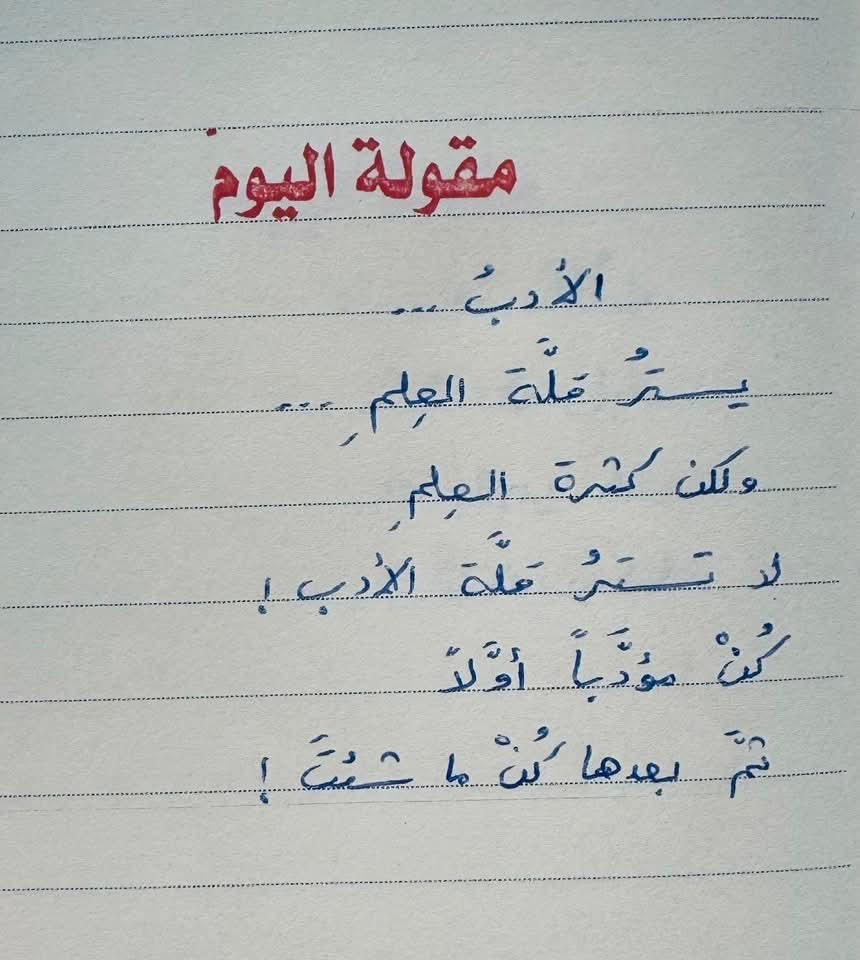 مقولة اليوم
الأدبُ ...
يسترُ قلَّة العِلمِ ...
ولكن كثرة العِلمِ
لا تسترُ قلَّة الأدب !
كُنْ مؤدَّباً أوَّلاً
ثمَّ بعدها كُنْ ما شئتَ !